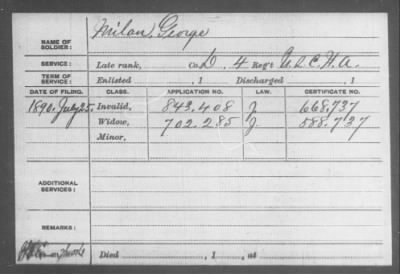 NAME OF SOLDIER: Milan, George
SERVICE: Late rank, Co. D, 4 Reg't U.S.C.H.A.
TERM OF SERVICE: Enlisted , 1 Discharged , 1
DATE OF FILING. CLASS. APPLICATION NO. LAW. CERTIFICATE NO.
1890, July 25. Invalid, 843.408 J 668,737
Widow, 702.285 J. 588.737
Minor,
ADDITIONAL SERVICES:
REMARKS:
Died , 1 , at